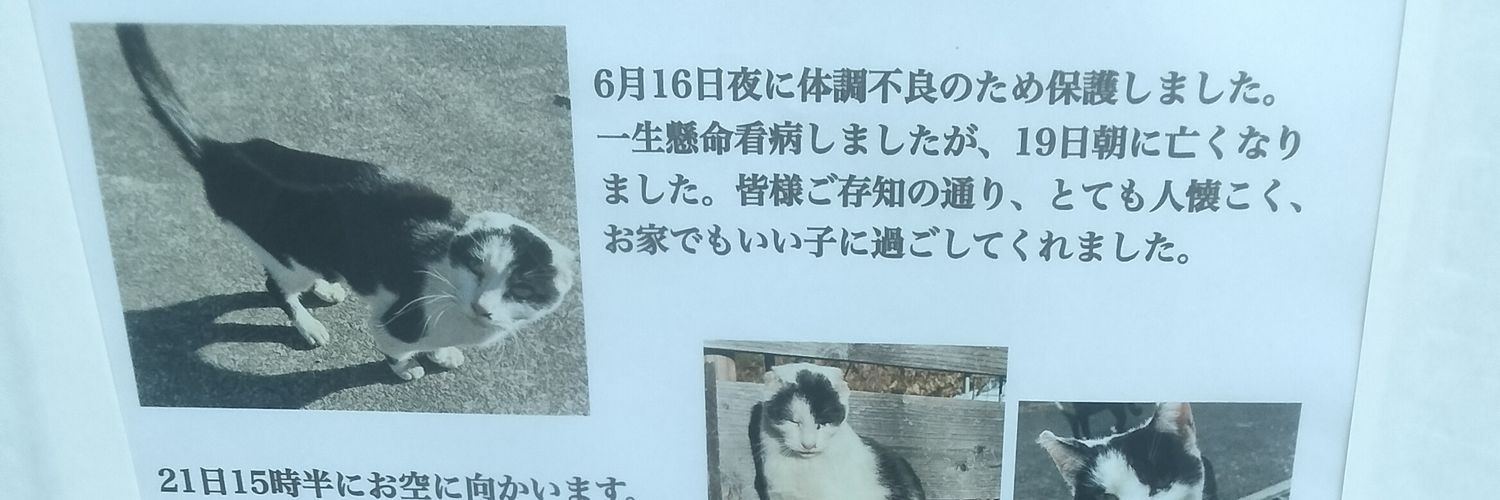 6月16日夜に体調不良のため保護しました。
一生懸命看病しましたが、19日朝に亡くなり
ました。皆様ご存知の通り、とても人懐こく、
お家でもいい子に過ごしてくれました。
21日15時半にお空に向かいます。